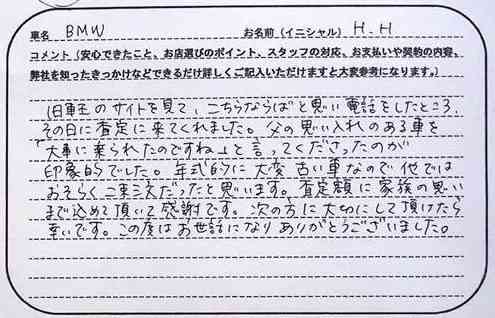 車名 BMW お名前(イニシャル) H.H
コメント(安心できたこと、お店選びのポイント、スタッフの対応、お支払いや契約の内容、
弊社を知ったきっかけなどできるだけ詳しくご記入いただけますと大変参考になります。)
旧車王のサイトを見て、こちらならばと思い電話をしたところ、
その日に査定に来てくれました。父の思い入れのある車を
「大事に乗られたのですね」と言ってくださったのが
印象的でした。年式的に大変古い車なので他では
おそらく二束三文だったと思います。査定額に家族の思い
まで込めて頂いて感謝です。次の方に大切にして頂けたら
幸いです。この度はお世話になりありがとうございました。